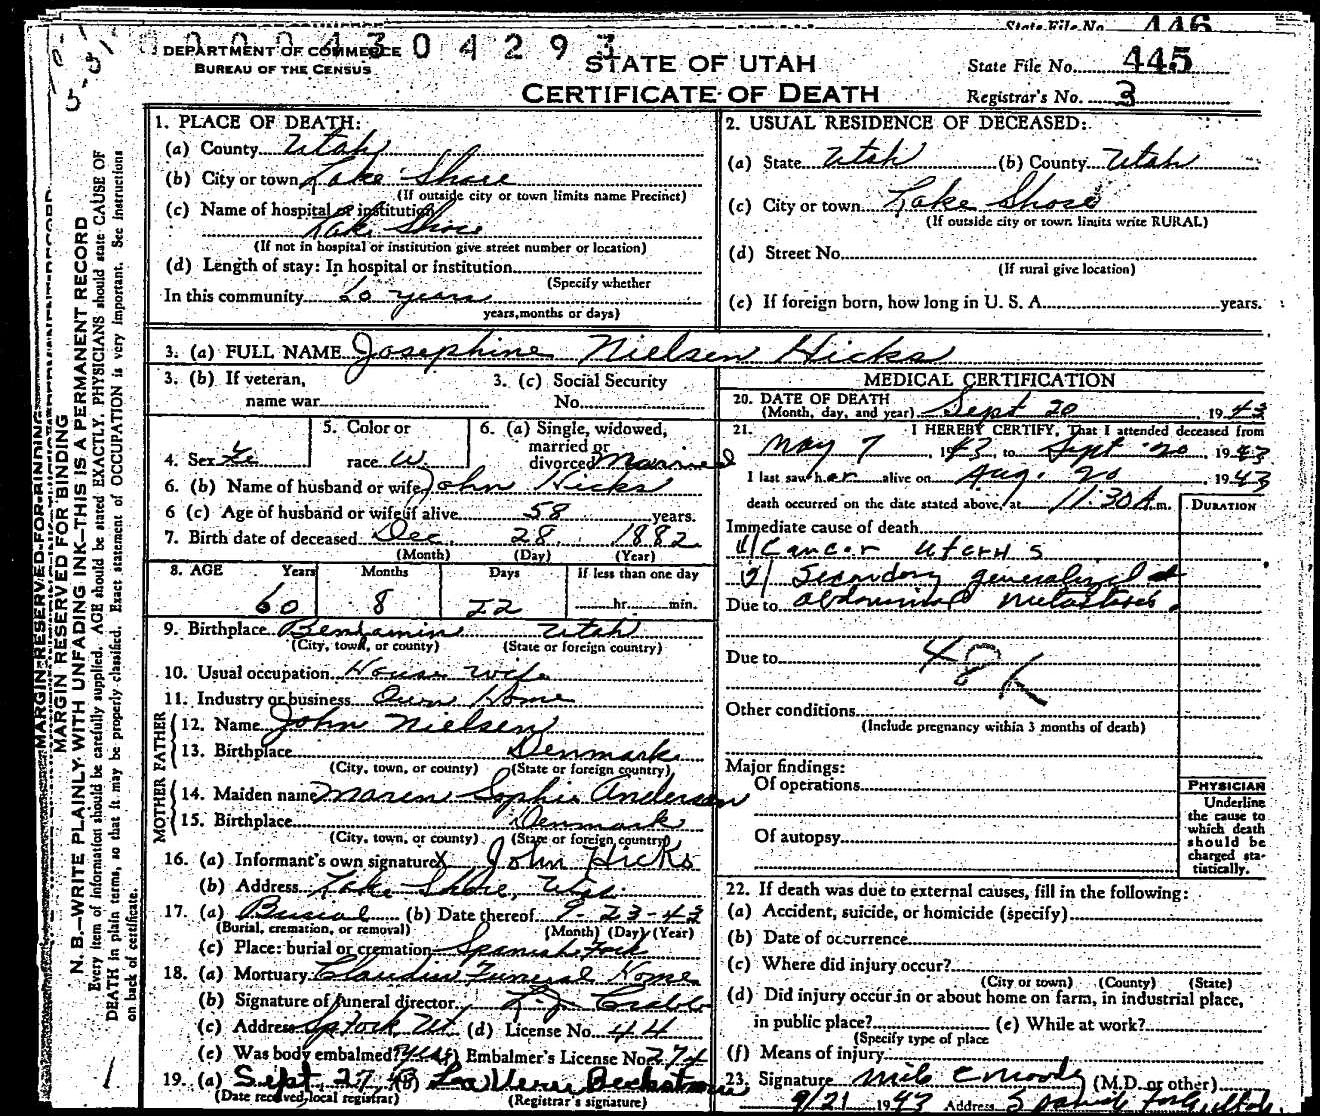 State File No. 446
0004304293
DEPARTMENT OF COMMERCE
BUREAU OF THE CENSUS
STATE OF UTAH
CERTIFICATE OF DEATH
State File No. 445
Registrar's No. 3
MARGIN RESERVED FOR BINDING
N. B.—WRITE PLAINLY WITH UNFADING INK—THIS IS A PERMANENT RECORD
Every item of information should be carefully supplied. AGE should be stated EXACTLY. PHYSICIANS should state CAUSE OF
DEATH in plain terms, so that it may be properly classified. Exact statement of OCCUPATION is very important. See instructions
on back of certificate.
1. PLACE OF DEATH:
(a) County Utah
(b) City or town Lake Shore
(If outside city or town limits name Precinct)
(c) Name of hospital or institution
Lake Shore
(If not in hospital or institution give street number or location)
(d) Length of stay: In hospital or institution
(Specify whether
In this community 60 years
years, months or days)
2. USUAL RESIDENCE OF DECEASED:
(a) State Utah (b) County Utah
(c) City or town Lake Shore
(If outside city or town limits write RURAL)
(d) Street No.
(If rural give location)
(e) If foreign born, how long in U. S. A. years.
3. (a) FULL NAME Josephine Nielsen Hicks
3. (b) If veteran,
name war
3. (c) Social Security
No.
4. Sex Fe
5. Color or
race W
6. (a) Single, widowed,
married or
divorced Married
6. (b) Name of husband or wife John Hicks
6 (c) Age of husband or wife if alive 58 years.
7. Birth date of deceased Dec. 28 1882
(Month) (Day) (Year)
8. AGE Years Months Days If less than one day
60 8 22 hr. min.
9. Birthplace Benjamin Utah
(City, town, or county) (State or foreign country)
10. Usual occupation House wife
11. Industry or business Own Home
FATHER
12. Name John Nielsen
13. Birthplace Denmark
(City, town, or county) (State or foreign country)
MOTHER
14. Maiden name Maren Sophie Andersen
15. Birthplace Denmark
(City, town, or county) (State or foreign country)
16. (a) Informant's own signature X John Hicks
(b) Address Lake Shore, Utah
17. (a) Burial (b) Date thereof 9-23-43
(Burial, cremation, or removal) (Month) (Day) (Year)
(c) Place: burial or cremation Spanish Fork
18. (a) Mortuary Claudin Funeral Home
(b) Signature of funeral director
(c) Address Sp Fork Ut. (d) License No. 44
(e) Was body embalmed? yes (f) Embalmer's License No. 274
19. (a) Sept. 27, 43 (b) La Verne Beckstrom
(Date received, local registrar) (Registrar's signature)
MEDICAL CERTIFICATION
20. DATE OF DEATH
(Month, day, and year) Sept 20, 1943
21. I HEREBY CERTIFY, That I attended deceased from
May 7, 1943, to Sept 20, 1943
I last saw her alive on Aug. 20, 1943
death occurred on the date stated above, at 11:30 A.m.
DURATION
Immediate cause of death
1) Cancer uterus
2) Secondary generalized
Due to abdominal metastasis.
Due to 48K
Other conditions
(Include pregnancy within 3 months of death)
Major findings:
Of operations
Of autopsy
PHYSICIAN
Underline
the cause to
which death
should be
charged sta-
tistically.
22. If death was due to external causes, fill in the following:
(a) Accident, suicide, or homicide (specify)
(b) Date of occurrence
(c) Where did injury occur?
(City or town) (County) (State)
(d) Did injury occur in or about home on farm, in industrial place,
in public place? (e) While at work?
(Specify type of place
(f) Means of injury
23. Signature (M.D. or other)
9/21 1943 Address Spanish Fork Utah